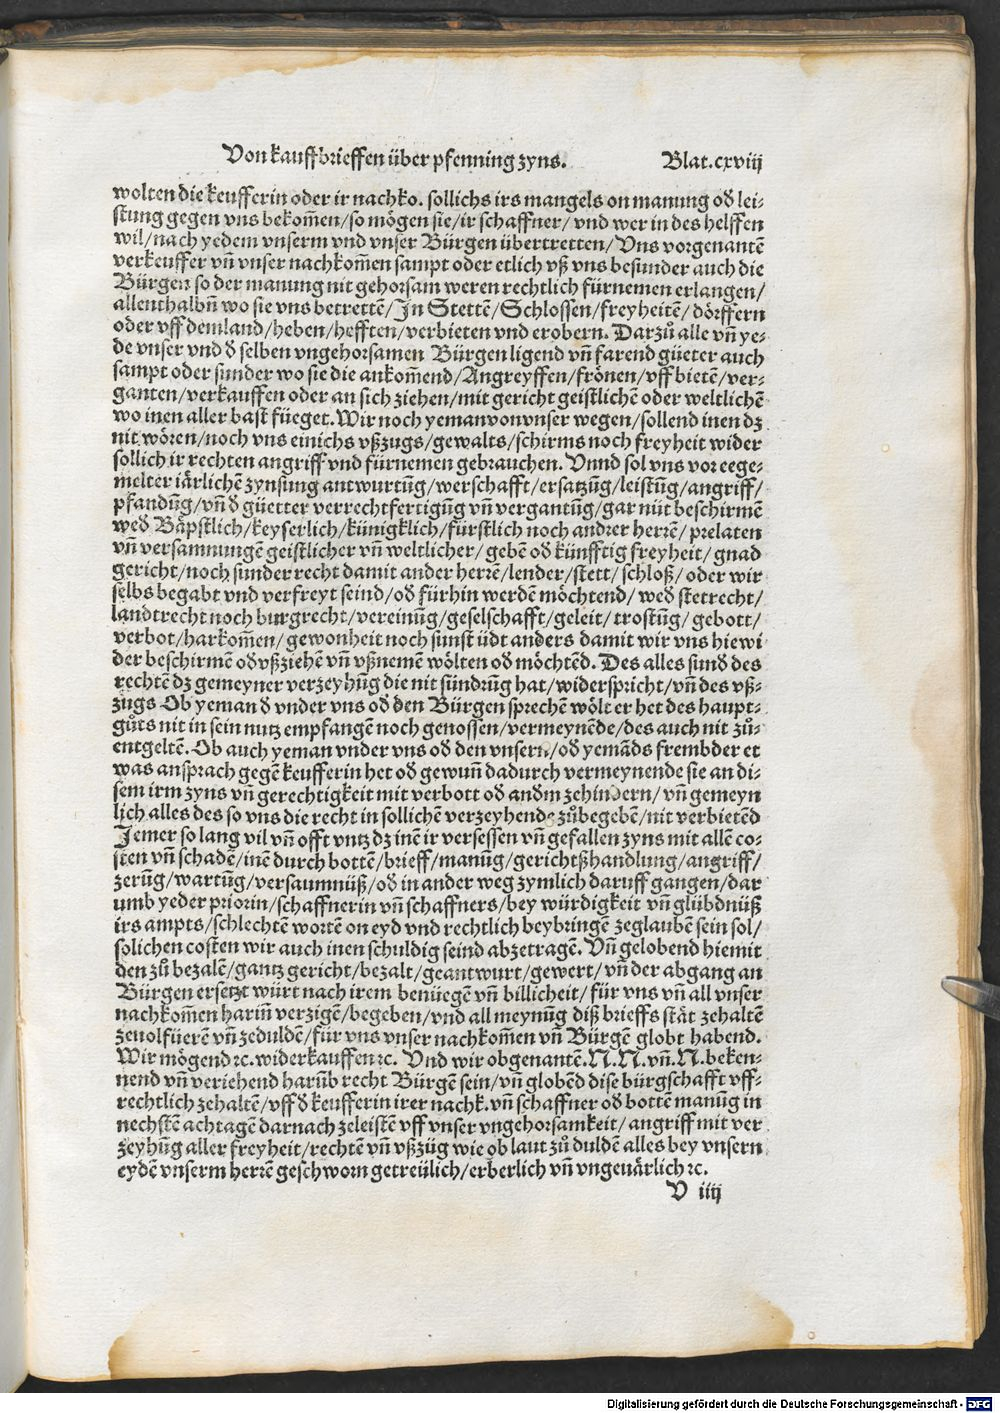 Von kauffbrieffen über pfenning zyns. Blat. cxviij
wolten die keufferin oder ir nachko. sollichs irs mangels on manung od̕ lei-
stung gegen vns bekom̄en/so mögen sie/ir schaffner/vnd wer in des helffen
wil/nach yedem vnserm vnd vnser Bürgen übertretten/Vns vorgenantē
verkeuffer vn̄ vnser nachkom̄en sampt oder etlich vß vns besunder auch die
Bürgen so der manung nit gehorsam weren rechtlich fürnemen erlangen/
allenthalbn̄ wo sie vns betrettē/In Stettē/Schlossen/freyheitē/dörffern
oder vff dem land/heben/hefften/verbieten vnd erobern. Darzů alle vn̄ ye-
de vnser vnd d̕ selben vngehorsamen Bürgen ligend vn̄ farend güeter auch
sampt oder sunder wo sie die ankom̄end/Angreyffen/frönen/vff bietē/ver-
ganten/verkauffen oder an sich ziehen/mit gericht geistlichē oder weltlichē
wo inen aller bast füeget. Wir noch yeman von vnser wegen/sollend inen dz
nit wören/noch vns einichs vßzugs/gewalts/schirms noch freyheit wider
sollich ir rechten angriff vnd fürnemen gebrauchen. Vnnd sol vns vor eege-
melter iärlichē zynsung antwurtūg/werschafft/ersatzūg/leistūg/angriff/
pfandūg/vn̄ d̕ güetter verrechtfertigūg vn̄ vergantūg/gar nüt beschirmē
wed̕ Bäpstlich/keyserlich/künigklich/fürstlich noch andrer herrē/prelaten
vn̄ versamnungē geistlicher vn̄ weltlicher/gebē od̕ künfftig freyheit/gnad
gericht/noch sunder recht damit ander herrē/lender/stett/schloß/oder wir
selbs begabt vnd verfreyt seind/od̕ fürhin werdē möchtend/wed̕ stetrecht/
landtrecht noch burgrecht/vereinūg/geselschafft/geleit/trostūg/gebott/
verbot/harkom̄en/gewonheit noch sunst üdt anders damit wir vns hiewi
der beschirmē od̕ vßziehē vn̄ vßnemē wölten od̕ möchtēd. Des alles sund des
rechtē dz gemeyner verzeyhūg die nit sündrūg hat/widerspricht/vn̄ des vß-
zugs Ob yeman d̕ vnder vns od̕ den Bürgen sprechē wölt er het des haupt-
gůts nit in sein nutz empfangē noch genossen/vermeynēde/des auch nit zů-
entgeltē. Ob auch yeman vnder vns od̕ den vnsern/od̕ yemāds frembder et
was ansprach gegē keufferin het od̕ gewun̄ dadurch vermeynende sie an di-
sem irm zyns vn̄ gerechtigkeit mit verbott od̕ and̕m zehindern/vn̄ gemeyn
lich alles des so vns die recht in sollichē verzeyhende zůbegebē/nit verbietēd
Jemer so lang vil vn̄ offt vntz dz inē ir versessen vn̄ gefallen zyns mit allē co-
sten vn̄ schadē/inē durch bottē/brieff/manūg/gerichtßhandlung/angriff/
zerūg/wartūg/versaumnüß/od̕ in ander weg zymlich daruff gangen/dar
umb yeder priorin/schaffnerin vn̄ schaffners/bey würdigkeit vn̄ glübdnüß
irs ampts/schlechtē wortē on eyd vnd rechtlich beybringē zeglaubē sein sol/
solichen costen wir auch inen schuldig seind abzetragē. Vn̄ gelobend hiemit
den zů bezalē/gantz gericht/bezalt/geantwurt/gewert/vn̄ der abgang an
Bürgen ersetzt würt nach irem benüegē vn̄ billicheit/für vns vn̄ all vnser
nachkom̄en harin̄ verzigē/begeben/vnd all meynūg diß brieffs stät zehaltē
zeuolfüerē vn̄ zeduldē/für vns vnser nachkom̄en vn̄ Bürgē globt habend.
Wir mögend ꝛc. widerkauffen ꝛc. Vnd wir obgenantē. N. N. vn̄. N. beken-
nend vn̄ veriehend harūb recht Bürgē sein/vn̄ globēd dise bürgschafft vff-
rechtlich zehaltē/vff d̕ keufferin irer nachk. vn̄ schaffner od̕ bottē manūg in
nechstē achtagē darnach zeleistē vff vnser vngehorsamkeit/angriff mit ver
zeyhūg aller freyheit/rechtē vn̄ vßzüg wie ob laut zů duldē alles bey vnsern
eydē vnserm herrē geschworn getreülich/erberlich vn̄ vngeuärlich ꝛc.
V iiij
Digitalisierung gefördert durch die Deutsche Forschungsgemeinschaft - DFG